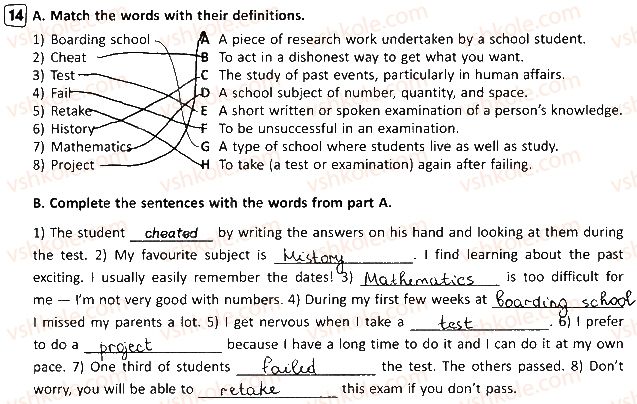 14 A. Match the words with their definitions.
1) Boarding school A A piece of research work undertaken by a school student.
2) Cheat B To act in a dishonest way to get what you want.
3) Test C The study of past events, particularly in human affairs.
4) Fail D A school subject of number, quantity, and space.
5) Retake E A short written or spoken examination of a person's knowledge.
6) History F To be unsuccessful in an examination.
7) Mathematics G A type of school where students live as well as study.
8) Project H To take (a test or examination) again after failing.
B. Complete the sentences with the words from part A.
1) The student cheated by writing the answers on his hand and looking at them during
the test. 2) My favourite subject is History. I find learning about the past
exciting. I usually easily remember the dates! 3) Mathematics is too difficult for
me — I'm not very good with numbers. 4) During my first few weeks at boarding school
I missed my parents a lot. 5) I get nervous when I take a test. 6) I prefer
to do a project because I have a long time to do it and I can do it at my own
pace. 7) One third of students failed the test. The others passed. 8) Don't
worry, you will be able to retake this exam if you don't pass.
vshkole.com